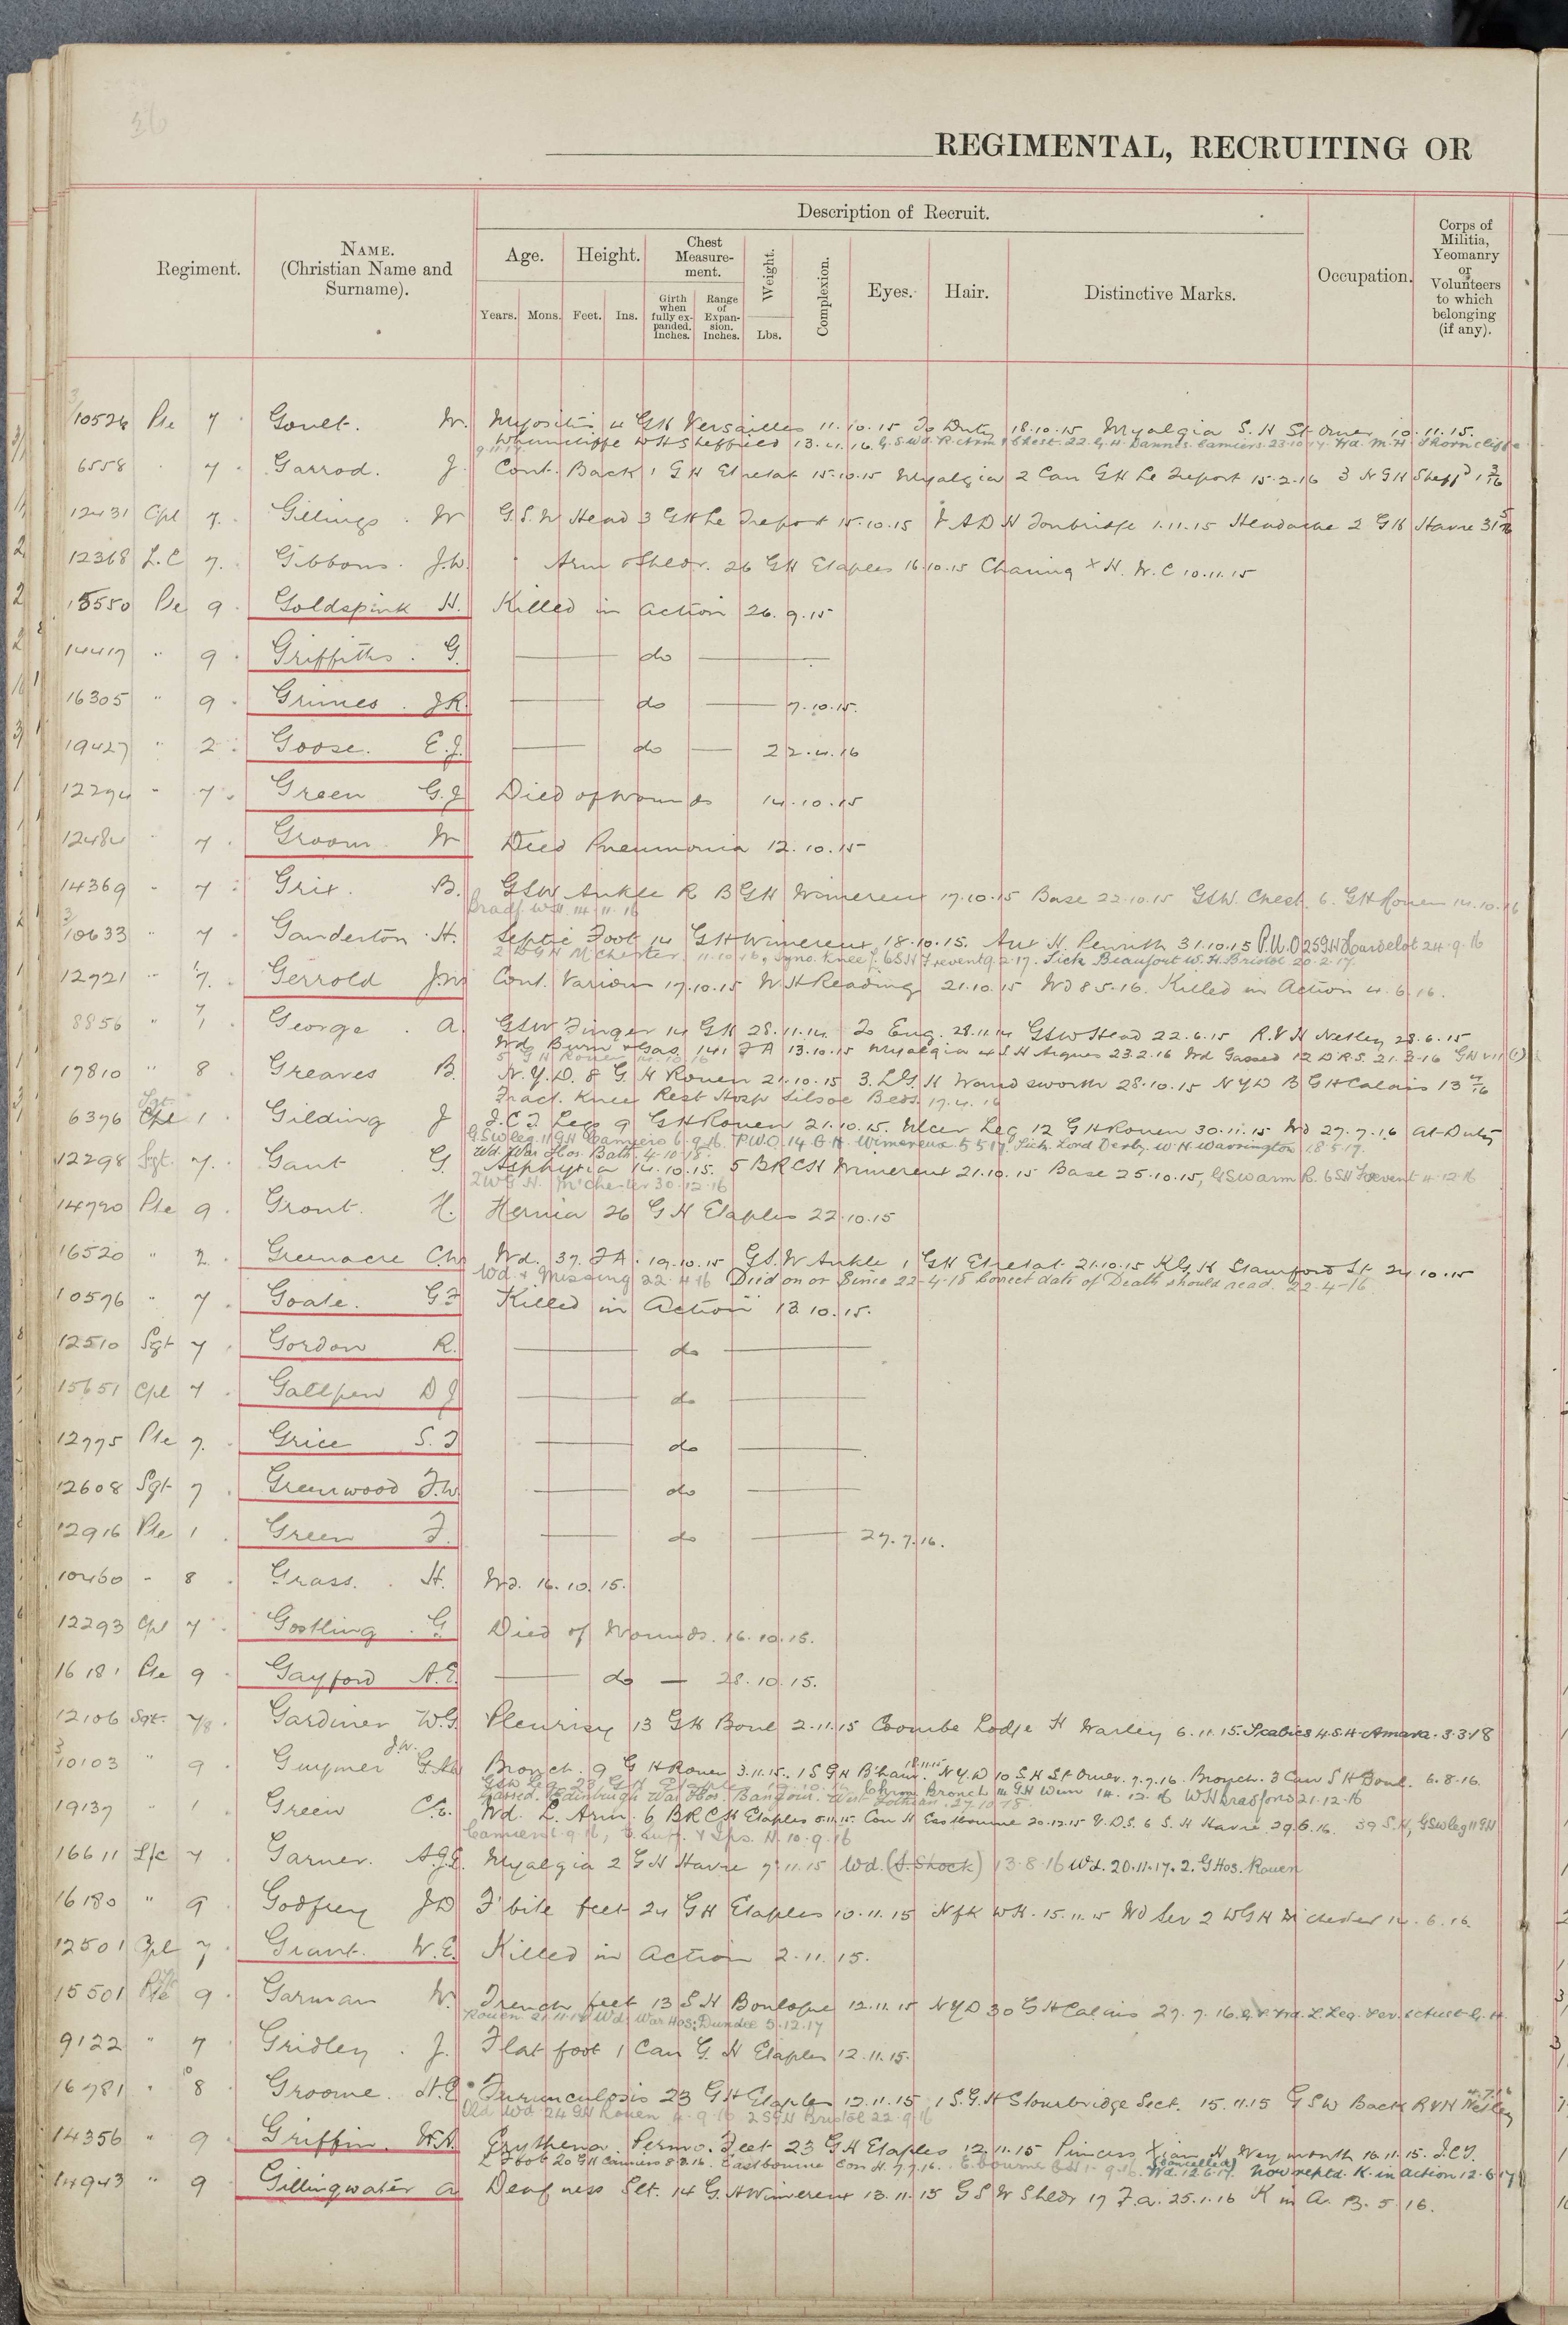 36
REGIMENTAL, RECRUITING OR
Regiment.
NAME.
(Christian Name and
Surname).
Description of Recruit.
Age.
Height.
Chest
Measure-
ment.
Weight.
Complexion.
Eyes.
Hair.
Distinctive Marks.
Occupation.
Corps of
Militia,
Yeomanry
or
Volunteers
to which
belonging
(if any).
Years.
Mons.
Feet.
Ins.
Girth
when
fully ex-
panded.
Inches.
Range
of
Expan-
sion.
Inches.
Lbs.
3/10526 Pte 7 Goult. W. Myositis 4 GH Versailles 11.10.15 To Duty 18.10.15 Myalgia S. H St Omer 10.11.15.
Wharncliffe WH Sheffield 13.4.16. G.S.Wd. R. Arm & Chest. 22. G.H. Dannes. Camiers. 23.10.17. Wd. M. H. Thorncliffe
9.11.17.
6558 7 Garrod. J. Cont. Back 1 GH Etretat 15.10.15 Myalgia 2 Can GH Le Treport 15.2.16 3 N GH Sheffd
12431 Cpl 7. Gillings. W G.S.W Head 3 GH Le Treport 15.10.15 VAD H Tonbridge 1.11.15 Headache 2 GH Havre
12368 L.C 7. Gibbons. J.W. Arm & Shldr. 26 GH Etaples 16.10.15 Charing X H. W.C 10.11.15
15550 Pte 9 Goldspink H. Killed in action 26.9.15
14417 " 9 Griffiths. G. do
16305 " 9 Grimes. J.R. do 7.10.15.
19427 " 2 Goose. E.J. do 22.4.16
12294 " 7 Green G.J Died of Wounds 14.10.15
12484 " 7 Groom. W Died Pneumonia 12.10.15
14369 " 7 Grix. B. GSW Ankle R B GH Wimereux 17.10.15 Base 22.10.15 GSW. Chest. 6. GH Rouen 14.10.16
Bradf. W.H. 14.11.16
3/10633 " 7 Ganderton. H. Septic Foot 14 GH Wimereux 18.10.15. Aux H. Penrith 31.10.15 P.U.O 25 GH Hardelot 24.9.16
2 WGH M'chester. 11.10.16, Syno. Knee L. 6 S H Frevent 9.2.17. Sick Beaufort W. H. Bristol 20.2.17.
12721 " 7. Gerrold J.W. Cont. Various 17.10.15 W.H Reading 21.10.15 Wd 8.5.16. Killed in Action 4.6.16.
8856 " 7/1 George. A. GSW Finger 14 GH 28.11.14. To Eng. 28.11.14 GSW Head 22.6.15 R.V H Netley 28.6.15
Wd. Burn & Gas 141 FA 13.10.15 Myalgia 4 S H Arques 23.2.16 Wd Gassed 12 D.R.S. 21.3.16
5 GH Rouen
17810 " 8 Greaves B. N.Y.D. 8 G. H Rouen 21.10.15 3. LG. H Wandsworth 28.10.15 NYD B GH Calais
Fract. Knee Rest Hosp Silsoe Beds. 17.4.16
6376 Cpl Sgt. 1 Gilding J I.C.T Legs 9 GH Rouen 21.10.15. Ulcer Leg 12 GH Rouen 30.11.15 Wd 27.7.16 at Duty
G.SW leg. 11 GH Camiers 6.9.16. P.U.O. 14. G.H. Wimereux 5.5.17. Sick. Lord Derby W H Warrington 18.5.17.
Wd. War Hos. Bath. 4.10.18.
12298 Sgt. 7. Gant G. Asphyxia 14.10.15. 5 BRCH Wimereux 21.10.15 Base 25.10.15, GSW arm R. 6 SH Frevent 4.12.16
2 W G.H. M'chester 30.12.16
14790 Pte 9 Grout. H. Hernia 26 G H Etaples 22.10.15
16520 " 2 Greenacre C.W. Wd. 37. FA. 19.10.15 GS.W Ankle 1 GH Etretat 21.10.15 KG. H Stamford St 24.10.15
Wd. & Missing 22.4.16 Died on or Since 22-4-18 Correct date of Death should read. 22-4-16
10576 " 7 Goate. G.F Killed in Action 13.10.15.
12510 Sgt 7 Gordon R. do
15651 Cpl 7 Galtpen D J do
12775 Pte 7. Grice S. F do
12608 Sgt 7 Greenwood F.W. do
12916 Pte 1 Green F. do 27.7.16.
10460 " 8 Grass. H. Wd. 16.10.15.
12293 Cpl 7 Gostling. G. Died of Wounds. 16.10.15.
16181 Pte 9 Gayford A.E. do 28.10.15.
12106 Sgt. 7/8 Gardiner W.G. Pleurisy 13 GH Boul 2.11.15 Coombe Lodge H Warley 6.11.15. Scabies 4.S.H. Amara. 3.3.18
3/10103 " 9 Guymer J.W. Bronch. 9 G H Rouen 3.11.15. 1 S GH B'ham. 18.11.15 N.Y.D 10 S.H St Omer. 7.7.16. Bronch. 3 Can S H Boul. 6.8.16.
GSW Leg 23 GH Etaples 19.10.16 Chron Bronch 14 GH Wim 14.12.16 WH Bradford 21.12.16
Gassed. Edinburgh War Hos. Bangour. West Lothian. 27.10.18.
19137 " 1 Green C.C. Wd. L. Arm. 6 BRCH Etaples 5.11.15. Con H Eastbourne 20.12.15 V.D.S. 6 S. H Havre 29.6.16. 39 S.H, GSW leg 11 GH
Camiers 6.9.16, 10.9.16
16611 L/c 7 Garner. A.J.E. Myalgia 2 GH Havre 7.11.15 Wd. (S. Shock) 13.8.16 Wd. 20.11.17. 2. G Hos. Rouen
16180 " 9 Godfrey J.D F'bite feet 24 GH Etaples 10.11.15 Nfk WH. 15.11.15 Wd Sev 2 WGH M'chester 14.6.16.
12501 Cpl 7 Grant. W.E. Killed in Action 2.11.15.
15501 Pte 9 Garman W. Trench feet 13 S H Boulogne 12.11.15 NYD 30 GH Calais 27.7.16.
Rouen 21.11.17 Wd. War Hos: Dundee 5.12.17
9122 " 7 Gridley. J. Flat foot 1 Can G. H Etaples 12.11.15.
16781 " 8 Groome. H.E. Furunculosis 23 GH Etaples 12.11.15 1 S.G.H Stourbridge Sect. 15.11.15 GSW Back RVH Netley
Old Wd 24 GH Rouen 4.9.16 2 SGH Bristol 22.9.16
14356 " 9 Griffin. W.A. Erythema. Pernio. Feet 23 G H Etaples 12.11.15 Princess Xian. H. Weymouth 16.11.15. I.C.T.
L Foot 20 GH Camiers 8.3.16. Eastbourne Con H. 7.7.16. (Cancelled) Wd. 12.6.17. Now reptd. K. in action 12.6.17
14943 " 9 Gillingwater A Deafness Slt. 14 G. H Wimereux 13.11.15 G S W Shldr 17 F.A. 25.1.16 K in A. 13.5.16.